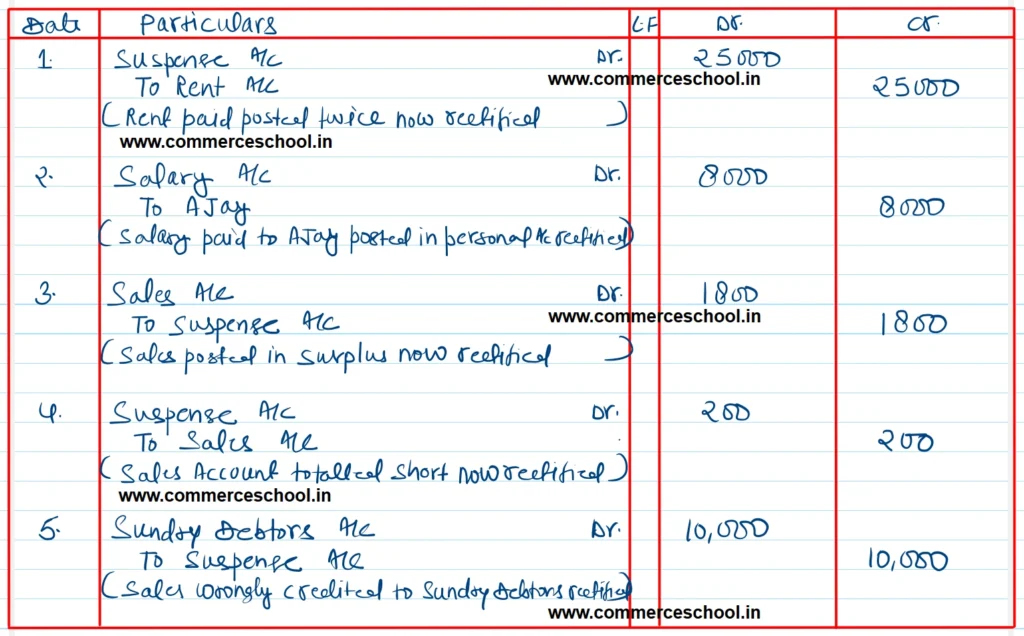 Date Particulars L.F Dr. Cr.
1. Suspense A/c Dr. 25000
www.commerceschool.in
To Rent A/c 25000
(Rent paid posted twice now rectified)
www.commerceschool.in
2. Salary A/c Dr. 8000
To Ajay 8000
(Salary paid to Ajay posted in personal A/c rectified)
3. Sales A/c Dr. 1800
www.commerceschool.in
To Suspense A/c 1800
(Sales posted in surplus now rectified)
4. Suspense A/c Dr. 200
To Sales A/c 200
(Sales Account totalled short now rectified)
www.commerceschool.in
5. Sundry Debtors A/c Dr. 10,000
To Suspense A/c 10,000
(Sales wrongly credited to Sundry Debtors rectified)
www.commerceschool.in